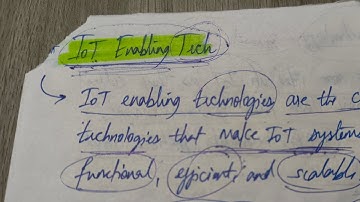 IoT Enabling Tech
IoT enabling technologies are the
technologies that make IoT systems
functional, efficient, and scalable